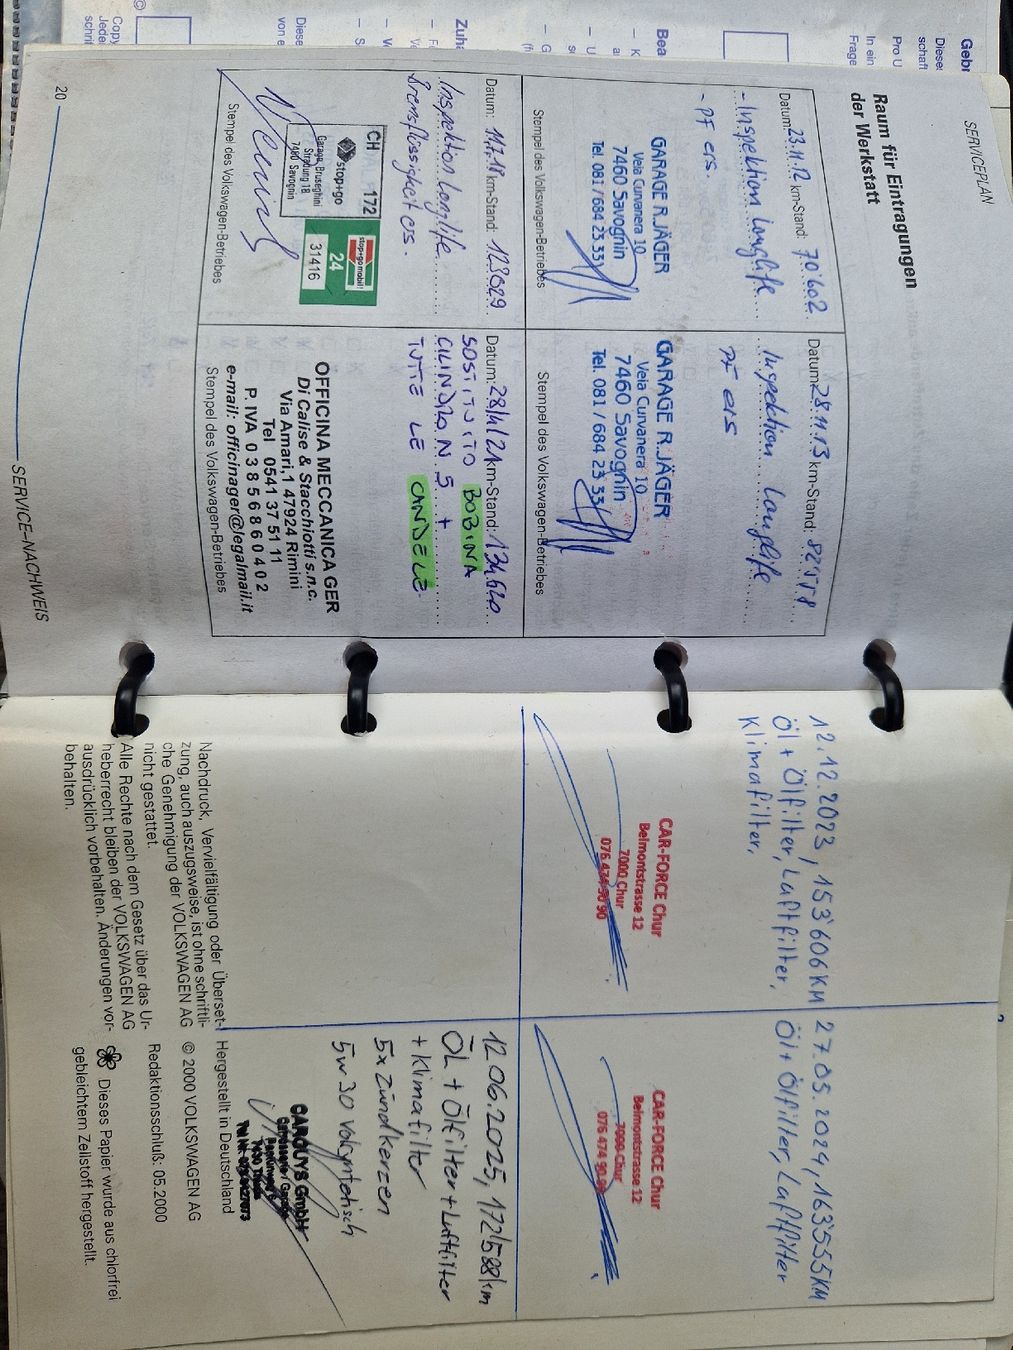 SERVICEPLAN
Raum für Eintragungen
der Werkstatt
Datum: 23.11.12 km-Stand: 70'602
- Inspektion Longlife
- PF ers.
GARAGE R.JÄGER
Veia Curvanera 10
7460 Savognin
Tel. 081 / 684 23 33
Stempel des Volkswagen-Betriebes
Datum: 28.11.13 km-Stand:
Inspektion Longlife
PF ers
GARAGE R.JÄGER
Veia Curvanera 10
7460 Savognin
Tel. 081 / 684 23 33
Stempel des Volkswagen-Betriebes
Datum: 11.7.18 km-Stand: 123029
Inspektion Longlife
Bremsflüssigkeit ers.
CH 172
stop+go
Garage Bruseghini
Stradung 18
7460 Savognin
stop+go mobil!
24
31416
Stempel des Volkswagen-Betriebes
Datum: 28/4/21 km-Stand: 134.640
SOSTITUITO BOBINA
CILINDRO N 5 +
TUTTE LE CANDELE
OFFICINA MECCANICA GER
Di Calise & Stacchiotti s.n.c.
Via Amari,1 47924 Rimini
Tel 0541 37 51 11
P. IVA 03856860402
e-mail: officinager@legalmail.it
Stempel des Volkswagen-Betriebes
20
SERVICE-NACHWEIS
12.12.2023, 153'606KM
Öl + Ölfilter, Luftfilter,
Klimafilter,
CAR-FORCE Chur
Belmontstrasse 12
7000 Chur
076 474 90 90
27.05.2024, 163'535KM
Öl + Ölfilter, Luftfilter
CAR-FORCE Chur
Belmontstrasse 12
7000 Chur
076 474 90 90
12.06.2025, 172'588km
ÖL + Ölfilter + Luftfilter
+ Klimafilter
5x Zündkerzen
5w30 Vollsyntetisch
CARGUYS GmbH
Nachdruck, Vervielfältigung oder Überset-
zung, auch auszugsweise, ist ohne schriftli-
che Genehmigung der VOLKSWAGEN AG
nicht gestattet.
Alle Rechte nach dem Gesetz über das Ur-
heberrecht bleiben der VOLKSWAGEN AG
ausdrücklich vorbehalten. Änderungen vor-
behalten.
Hergestellt in Deutschland
© 2000 VOLKSWAGEN AG
Redaktionsschluß: 05.2000
Dieses Papier wurde aus chlorfrei
gebleichtem Zellstoff hergestellt.